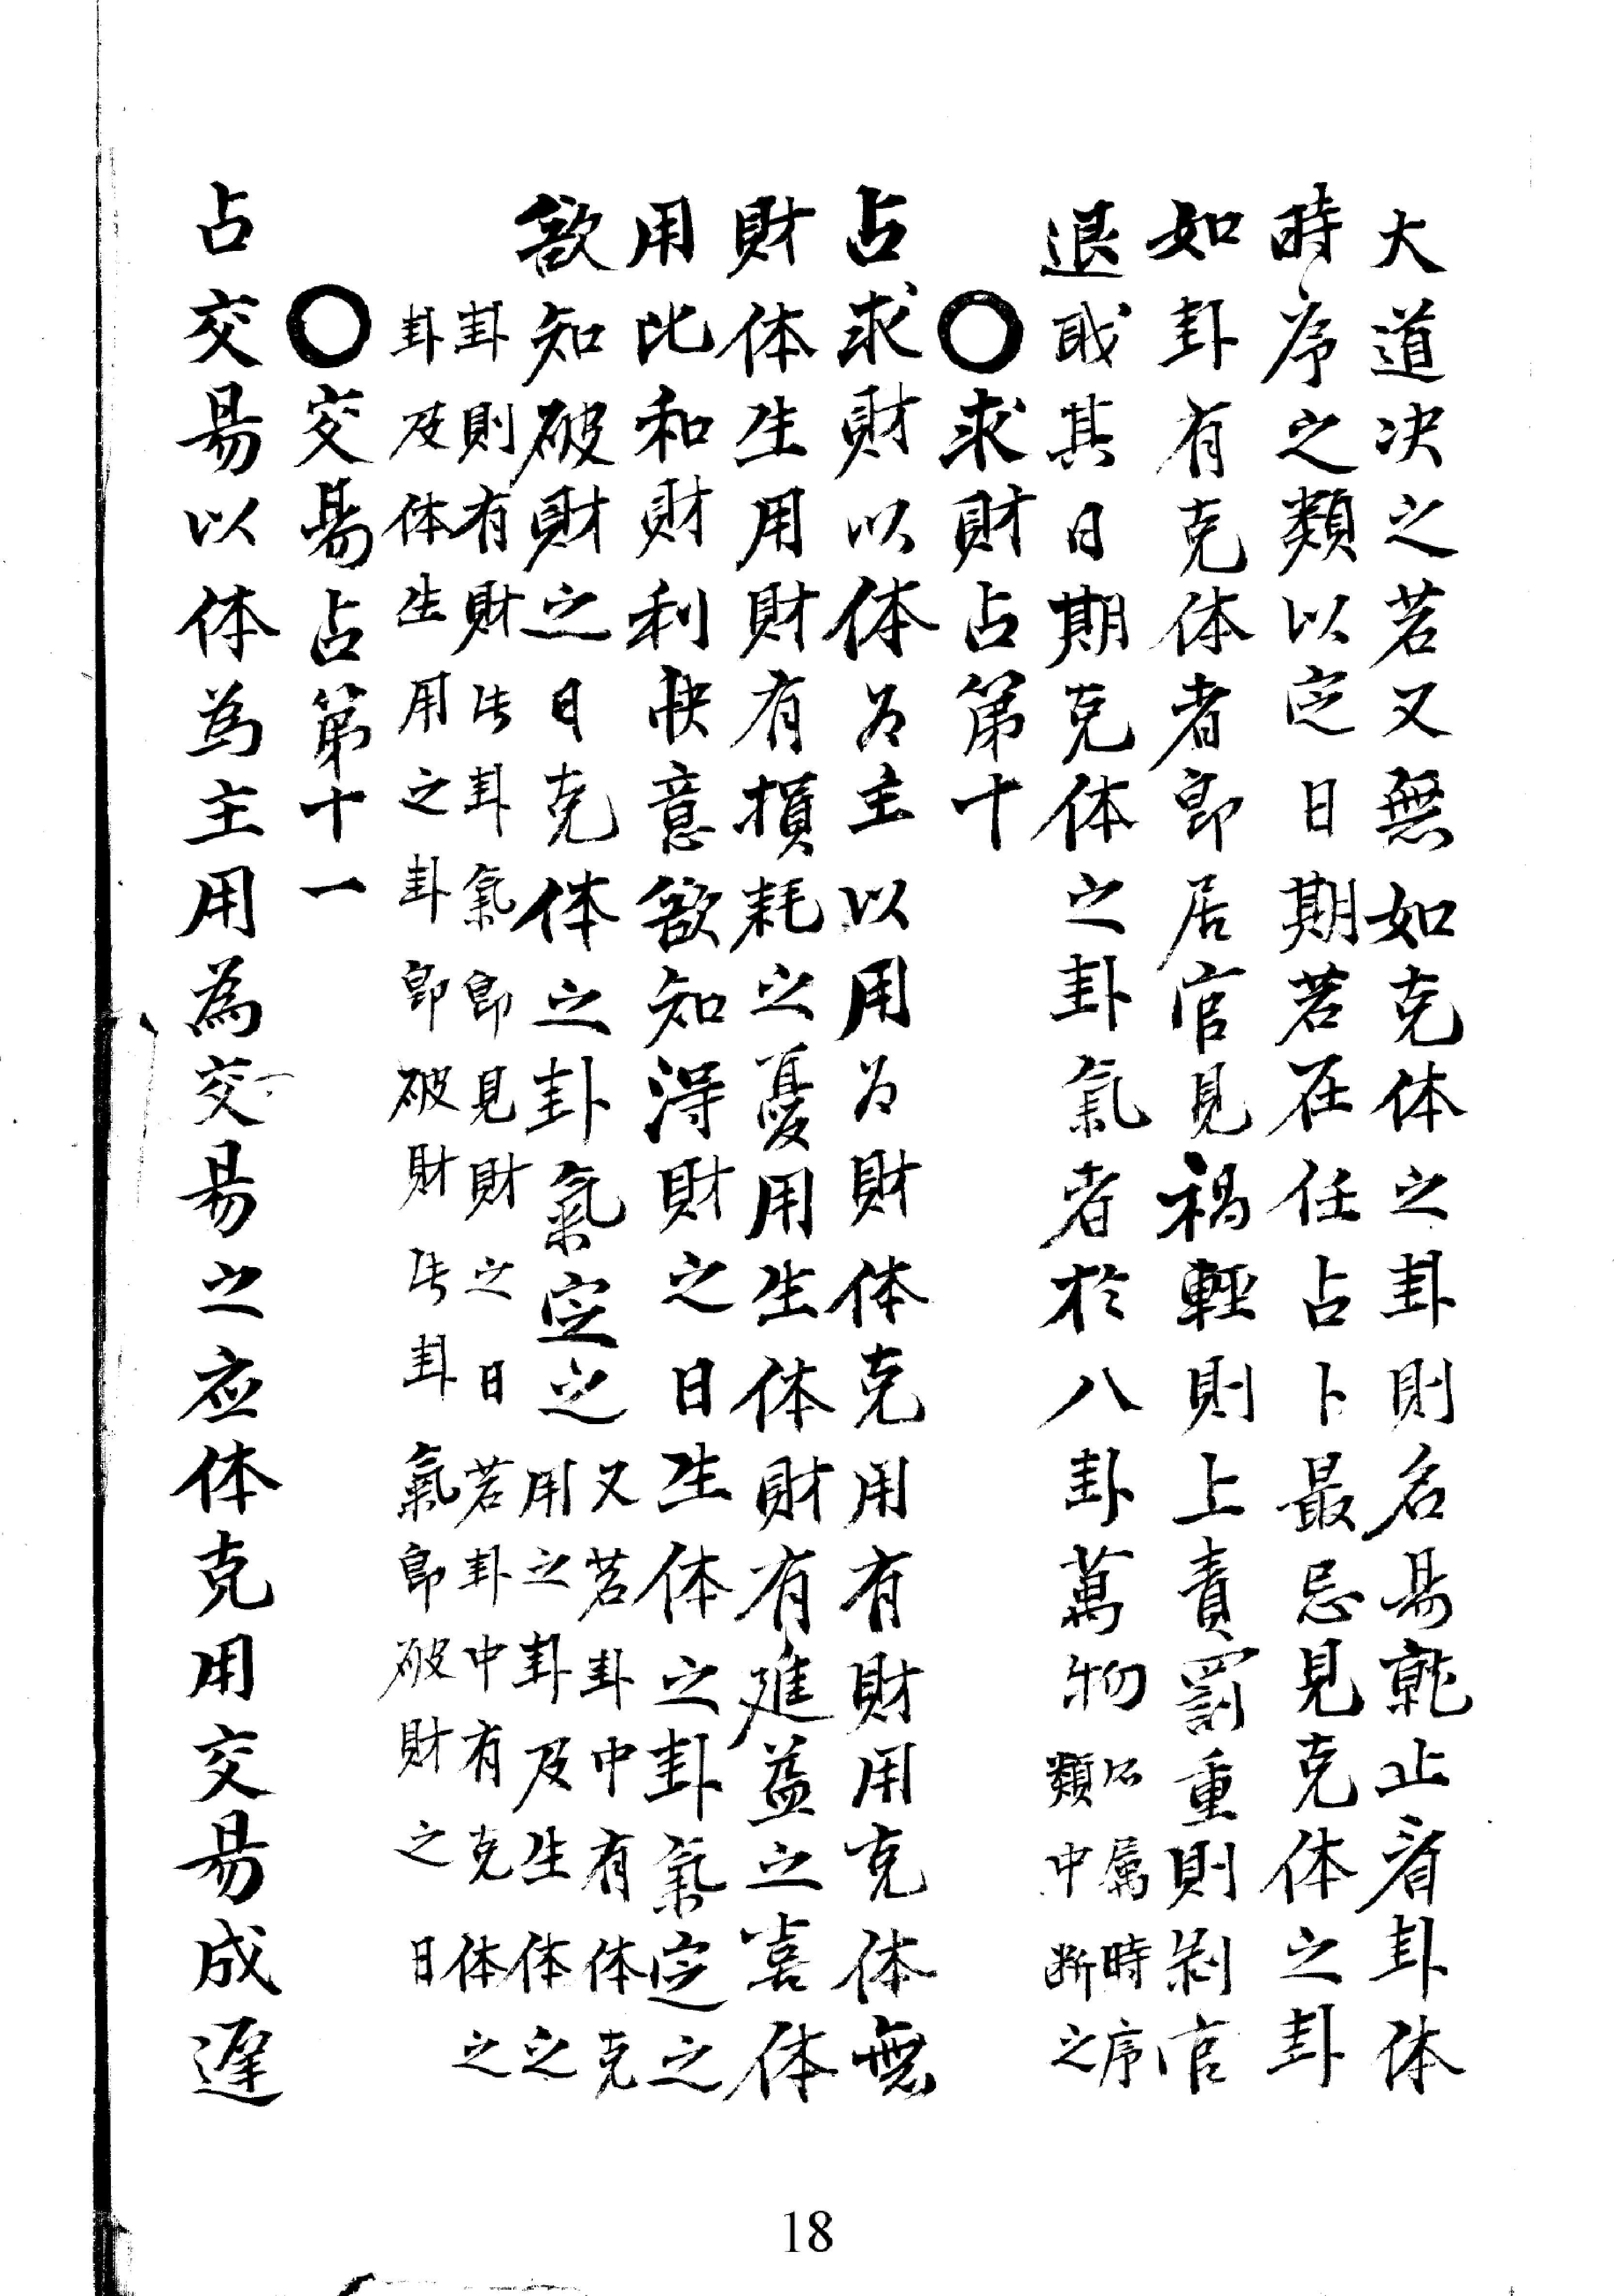 大道决之若又無如克体之卦則名易就止看卦体
時序之類以定日期若在任占卜最忌見克体之卦
如卦有克体者即居官見禍輕則上責罰重則剥官
退職其日期克体之卦氣者於八卦萬物
所属時序
類中断之
〇求財占第十
占求財以体为主以用为財体克用有財用克体無
財体生用財有損耗之憂用生体財有進益之喜体
用比和財利快意欲知得財之日生体之卦氣定之
欲知破財之日克体之卦氣定之
又若卦中有体克
用之卦及生体之
卦則有財此卦氣即見財之日若卦中有克体之
卦及体生用之卦即破財此卦氣即破財之日
〇交易占第十一
占交易以体為主用為交易之应体克用交易成遲
18